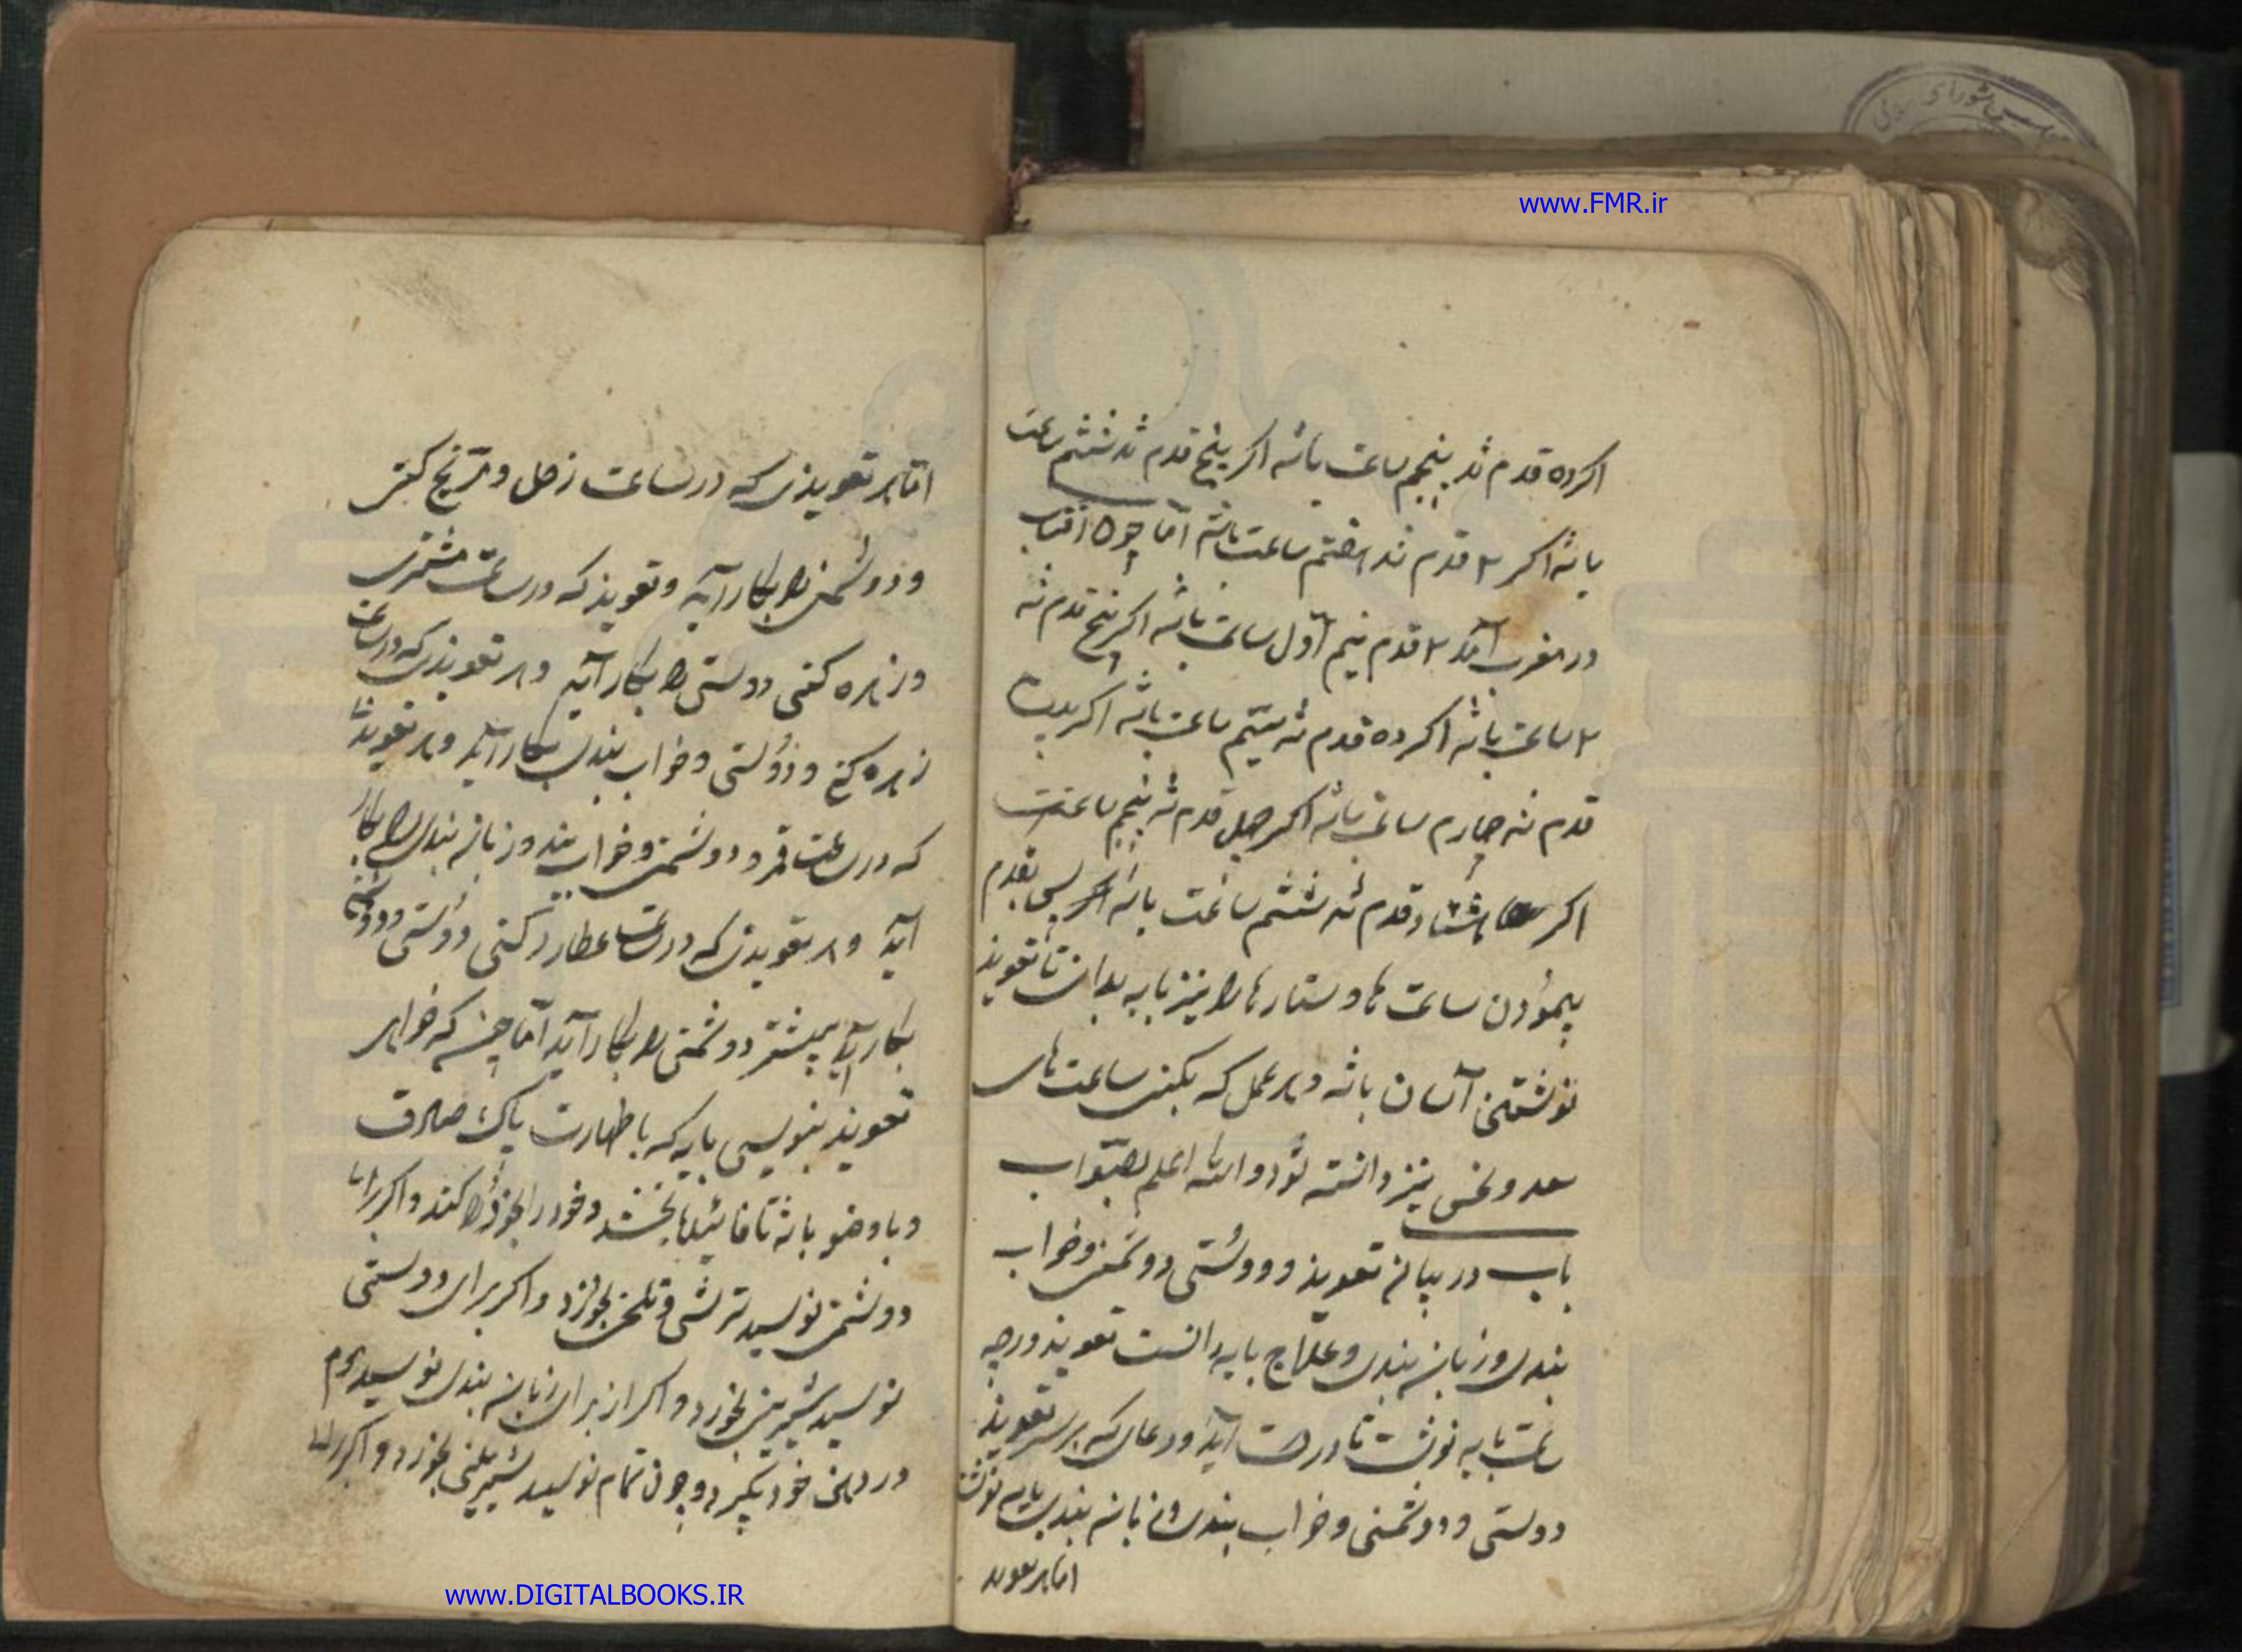 www.FMR.ir
اکر ده قدم شد پنجم ساعت باشه اکر پنج قدم شد ششم ساعت
باشه اکر ۲ قدم شد هفتم ساعت باشه اما چون افتاب
در مغرب آمد ۲ قدم نیم اول ساعت باشه اکر پنج قدم شه
۲ ساعت باشه اکر ده قدم شه سیم ساعت باشه اکر بیست
قدم شه چهارم ساعت باشه اکر چهل قدم شه پنجم ساعت
اکر هشتاد قدم شه ششم ساعت باشه پس بقدم
پیمودن ساعت ها و ستارها را نیز باید بدان تا تعویذ
نوشتن آسان باشه و هر عمل که بکنی ساعت های
سعد و نحس نیز دانسته شود والله اعلم بصواب
باب در بیان تعویذ و دوستی دوشمنی و خواب
بندی و زبان بندی و علاج باید دانست تعویذ در چه
ساعت باید نوشت تا درست آید و دعای که بر سر تعویذ
دوستی و دوشمنی و خواب بندی و زبان بندی باید نوشت
اما هر تعوید
اما هر تعویذی که در ساعت زحل و مریخ کنی
و دوشمنی را بکار آید و تعویذ که در ساعت مشتری
و زهره کنی دوستی را بکار آید و هر تعویذی که در ساعت
زهره کنی و دوستی و خواب بندی بکار آید و هر تعویذ
که در ساعت قمر و دوشمنی و خواب بند و زبان بندی را بکار
آید و هر تعویذی که در ساعت عطارد کنی دوستی و دوشمنی
بکار آید بیشتر دوشمنی را بکار آید اما چیزی که خواهی
تعویذ بنویسی باید که با طهارت پاک صادق
و با وضو باشه تا بخشد و خود را کند و اکر برای
دوشمنی نویسد ترشی و تلخی بخورد و اکر برای دوستی
نویسد شیرینی بخورد و اکر از برای زبان بندی نویسد موم
در دهن خود بگیرد و چون تمام نویسد شیرینی بخورد و اکر برای
www.DIGITALBOOKS.IR